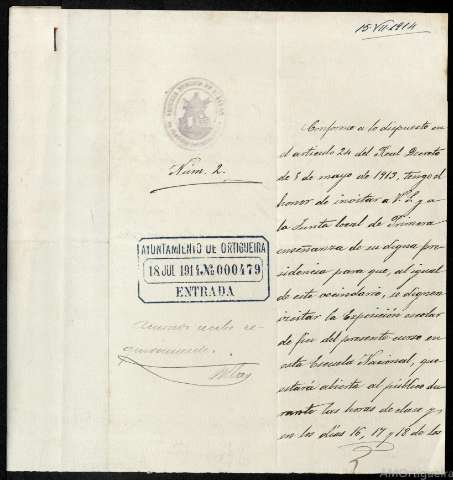 15 VII-1914
Núm. 2.
AYUNTAMIENTO DE ORTIGUEIRA
18 JUL 1914. Nº 000479
ENTRADA
recibo
Conforme a lo dispuesto en
el artículo 24 del Real Decreto
de 5 de mayo de 1913, tengo el
honor de invitar a V. S. y a
la Junta local de Primera
enseñanza de su digna pre-
sidencia para que, al igual
de este vecindario, se dignen
visitar la Exposición escolar
de fin del presente curso en
esta Escuela Nacional, que
estará abierta al público du-
rante las horas de clase y,
en los días 16, 17 y 18 de los
AMOrtigueira